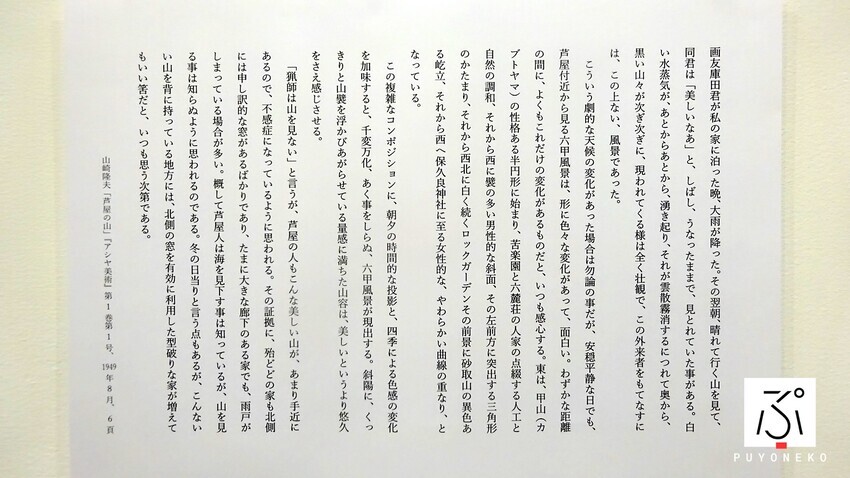 画友庫田君が私の家に泊った晩、大雨が降った。その翌朝、晴れて行く山を見て、
同君は「美しいなあ」と、しばし、うなったままで、見とれていた事がある。白
い水蒸気が、あとからあとから、湧き起り、それが雲散霧消するにつれて奥から、
黒い山々が次ぎ次ぎに、現われてくる様は全く壮観で、この外来者をもてなすに
は、この上ない、風景であった。
こういう劇的な天候の変化があった場合は勿論の事だが、安穏平静な日でも、
芦屋付近から見る六甲風景は、形に色々な変化があって、面白い。わずかな距離
の間に、よくもこれだけの変化があるものだと、いつも感心する。東は、甲山（カ
ブトヤマ）の性格ある半円形に始まり、苦楽園と六麓荘の人家の点綴する人工と
自然の調和、それから西に襞の多い男性的な斜面、その左前方に突出する三角形
のかたまり、それから西北に白く続くロックガーデンその前景に砂取山の異色あ
る屹立、それから西へ保久良神社に至る女性的な、やわらかい曲線の重なり、と
なっている。
この複雑なコンポジションに、朝夕の時間的な投影と、四季による色感の変化
を加味すると、千変万化、あく事をしらぬ、六甲風景が現出する。斜陽に、くっ
きりと山襞を浮かびあがらせている量感に満ちた山容は、美しいというより悠久
をさえ感じさせる。
「猟師は山を見ない」と言うが、芦屋の人もこんな美しい山が、あまり手近に
あるので、不感症になっているように思われる。その証拠に、殆どどの家も北側
には申し訳的な窓があるばかりであり、たまに大きな廊下のある家でも、雨戸が
しまっている場合が多い。概して芦屋人は海を見下す事は知っているが、山を見
る事は知らぬように思われるのである。冬の日当りと言う点もあるが、こんない
い山を背に持っている地方には、北側の窓を有効に利用した型破りな家が増えて
もいい筈だと、いつも思う次第である。
山崎隆夫「芦屋の山」『アシヤ美術』第1巻第1号、1949年8月、6頁
ぷ
PUYONEKO